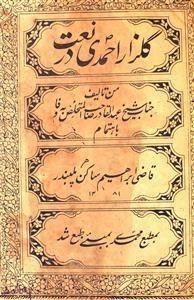 گلزار احمدی در نعت
من تالیف
جناب شیخ عبدالقادر صاحب المتخلص بوفا
باہتمام
قاضی ابراہیم
۱۲۸۱
بمطبع محمدی بمبئی طبع شد